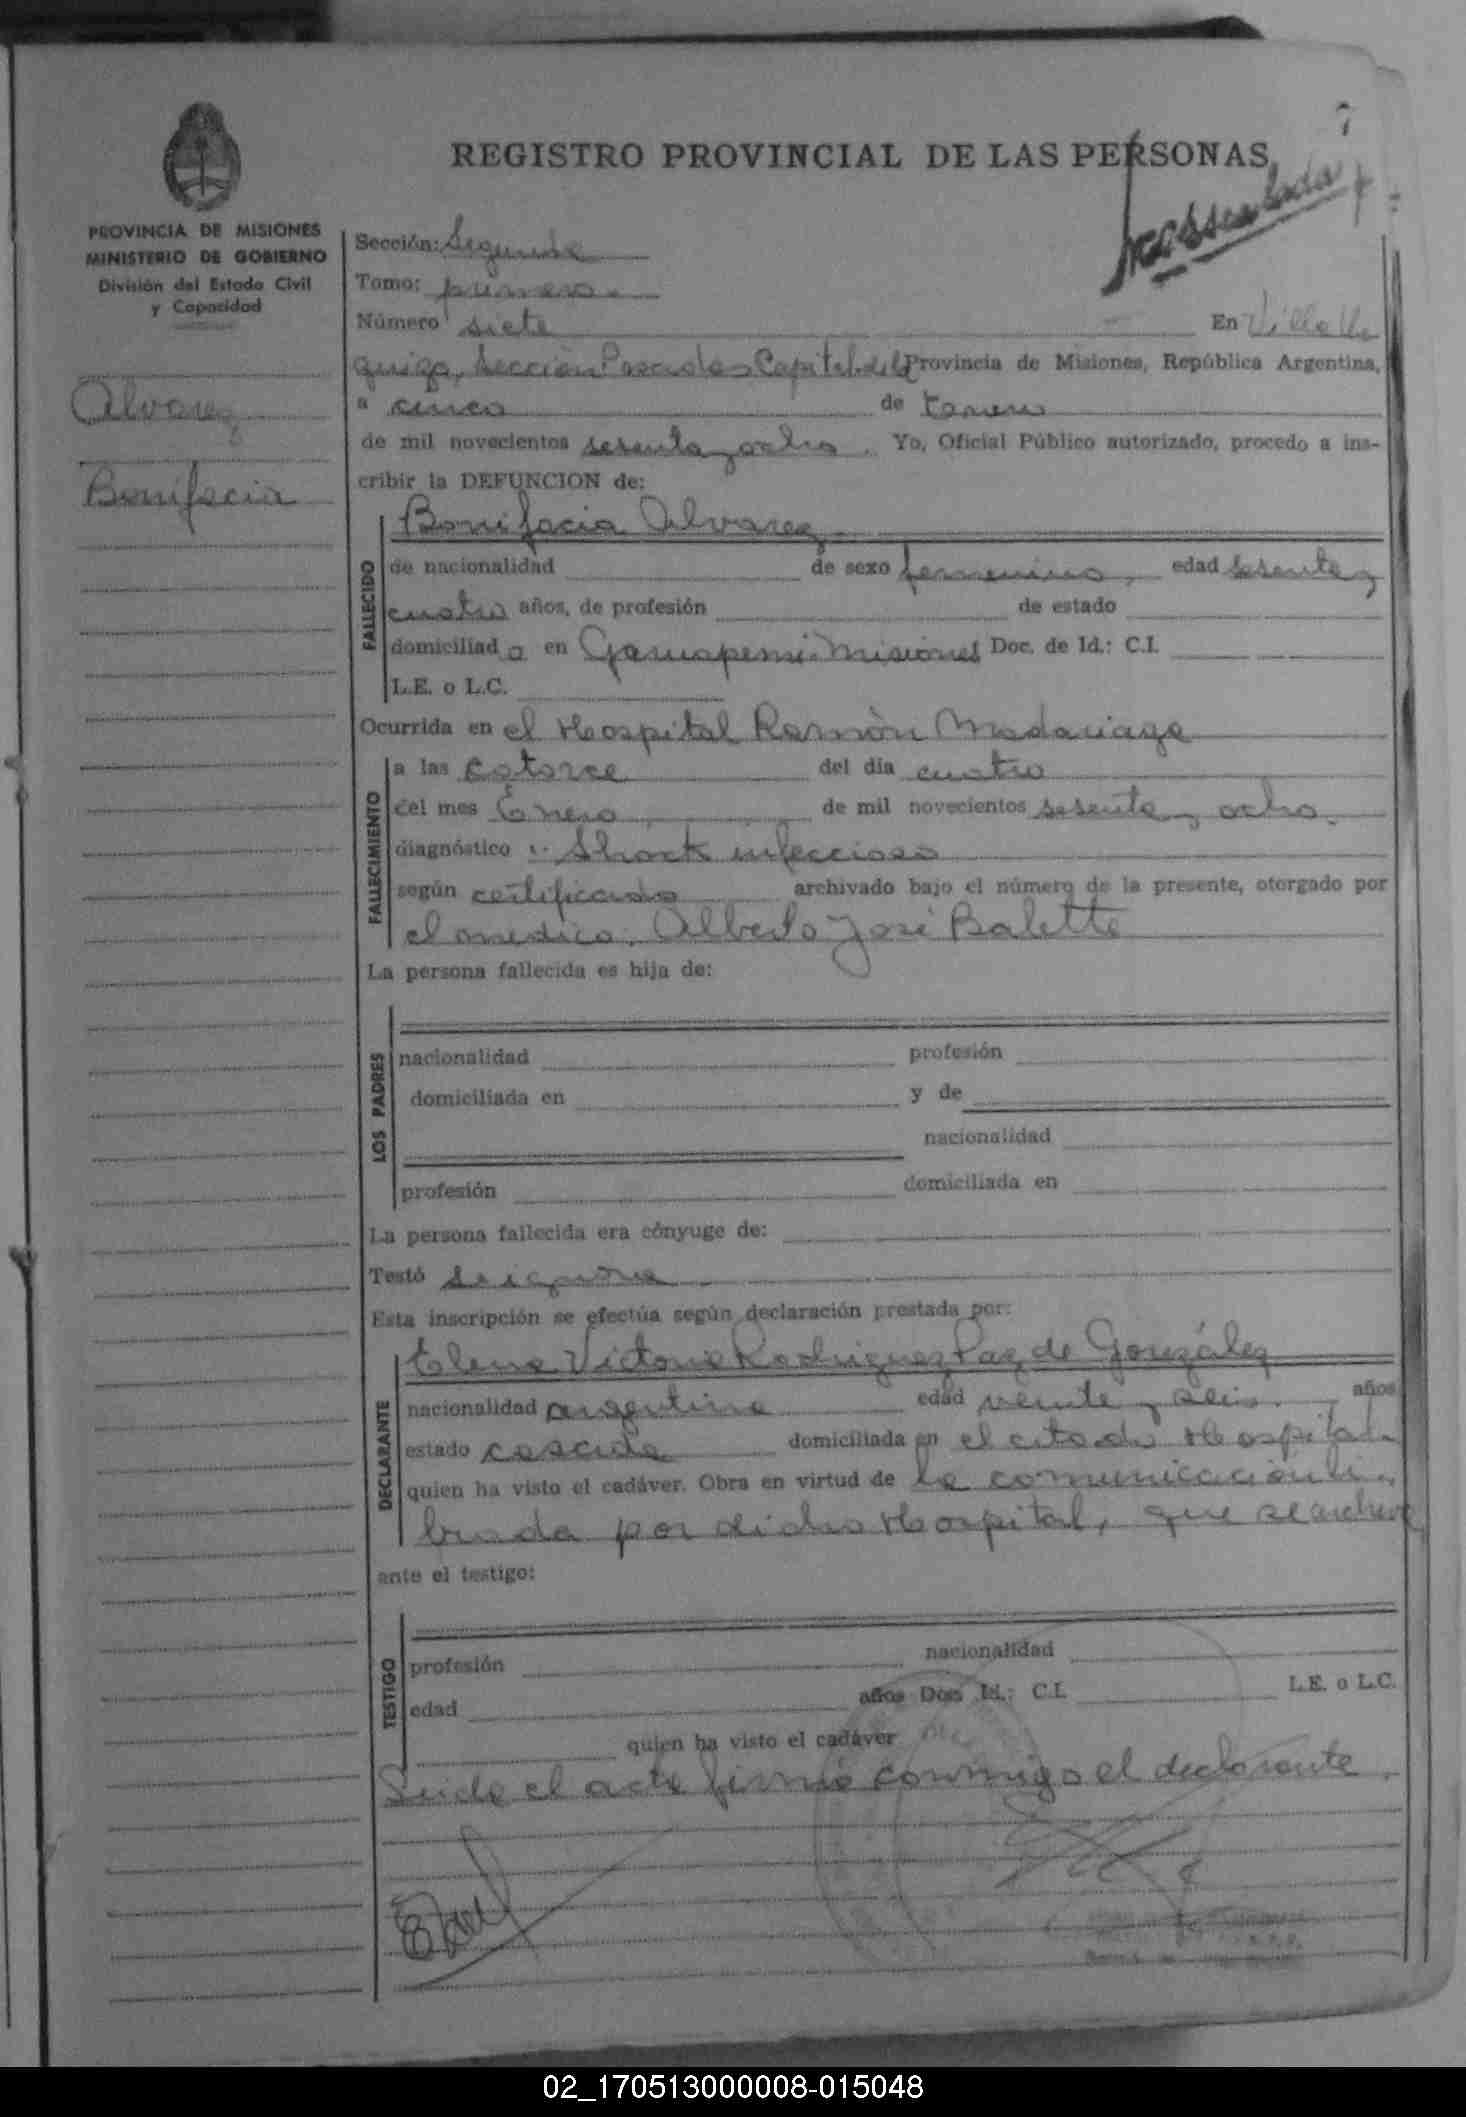 7
REGISTRO PROVINCIAL DE LAS PERSONAS
PROVINCIA DE MISIONES
MINISTERIO DE GOBIERNO
División del Estado Civil
y Capacidad
Alvarez
Bonifacia
Sección: Segunda
Tomo: primero
Número siete En Villa Ur
quiza, Sección Posadas Capital de la Provincia de Misiones, República Argentina,
a cinco de Enero
de mil novecientos sesenta y ocho. Yo, Oficial Público autorizado, procedo a ins-
cribir la DEFUNCION de:
FALLECIDO
Bonifacia Alvarez
de nacionalidad de sexo femenino, edad sesenta y
cuatro años, de profesión de estado
domiciliada en Garuapemi-Misiones Doc. de Id.: C.I.
L.E. o L.C.
Ocurrida en el Hospital Ramón Madariaga
FALLECIMIENTO
a las catorce del día cuatro
del mes Enero de mil novecientos sesenta y ocho.
diagnóstico: Shock infeccioso
según certificado archivado bajo el número de la presente, otorgado por
el médico, Alberto José Balette
La persona fallecida es hija de:
LOS PADRES
nacionalidad profesión
domiciliada en y de
nacionalidad
profesión domiciliada en
La persona fallecida era cónyuge de:
Testó se ignora
Esta inscripción se efectúa según declaración prestada por:
DECLARANTE
Elena Victoria Rodriguez Paz de González
nacionalidad argentina edad veinte y seis. años
estado casada domiciliada en el citado Hospital
quien ha visto el cadáver. Obra en virtud de la comunicación li-
brada por dicho Hospital, que se archiva
ante el testigo:
TESTIGO
profesión nacionalidad
edad años Doc. Id.: C.I. L.E. o L.C.
quien ha visto el cadáver
Leida el acta firmó conmigo el declarante.
02_170513000008-015048